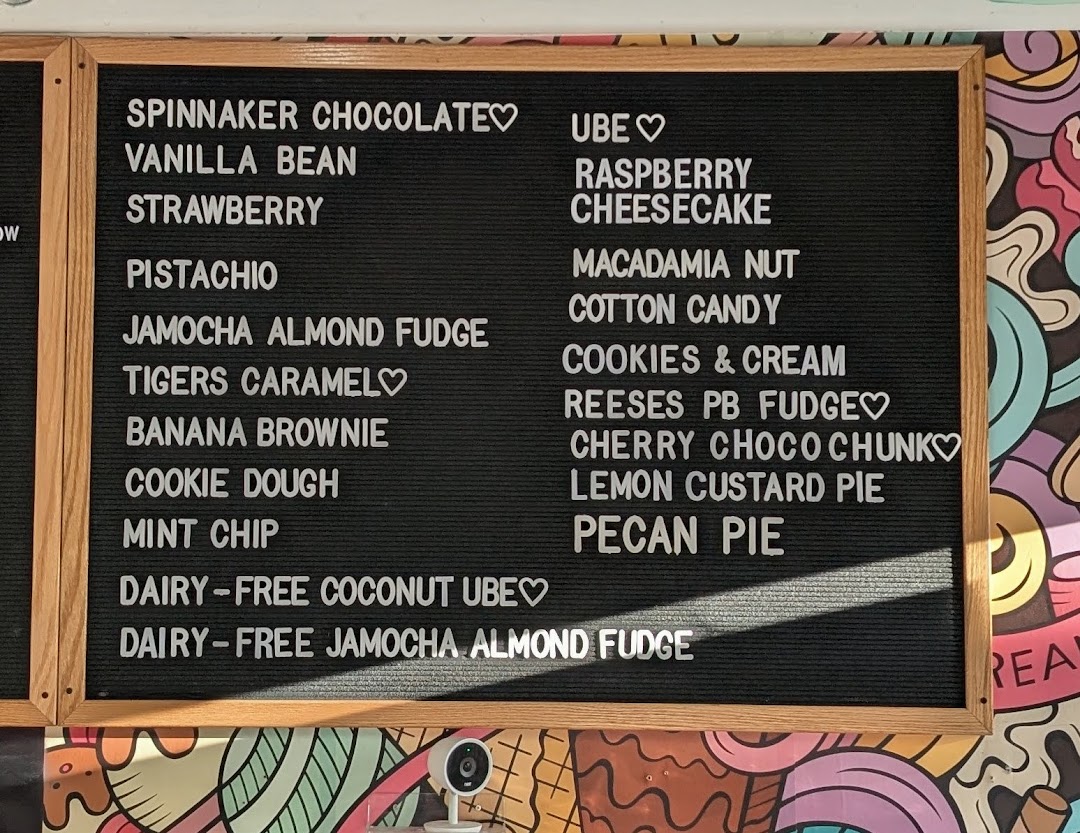 SPINNAKER CHOCOLATE♡
VANILLA BEAN
STRAWBERRY
PISTACHIO
JAMOCHA ALMOND FUDGE
TIGERS CARAMEL♡
BANANA BROWNIE
COOKIE DOUGH
MINT CHIP
DAIRY-FREE COCONUT UBE♡
DAIRY-FREE JAMOCHA ALMOND FUDGE
UBE♡
RASPBERRY
CHEESECAKE
MACADAMIA NUT
COTTON CANDY
COOKIES & CREAM
REESES PB FUDGE♡
CHERRY CHOCO CHUNK♡
LEMON CUSTARD PIE
PECAN PIE